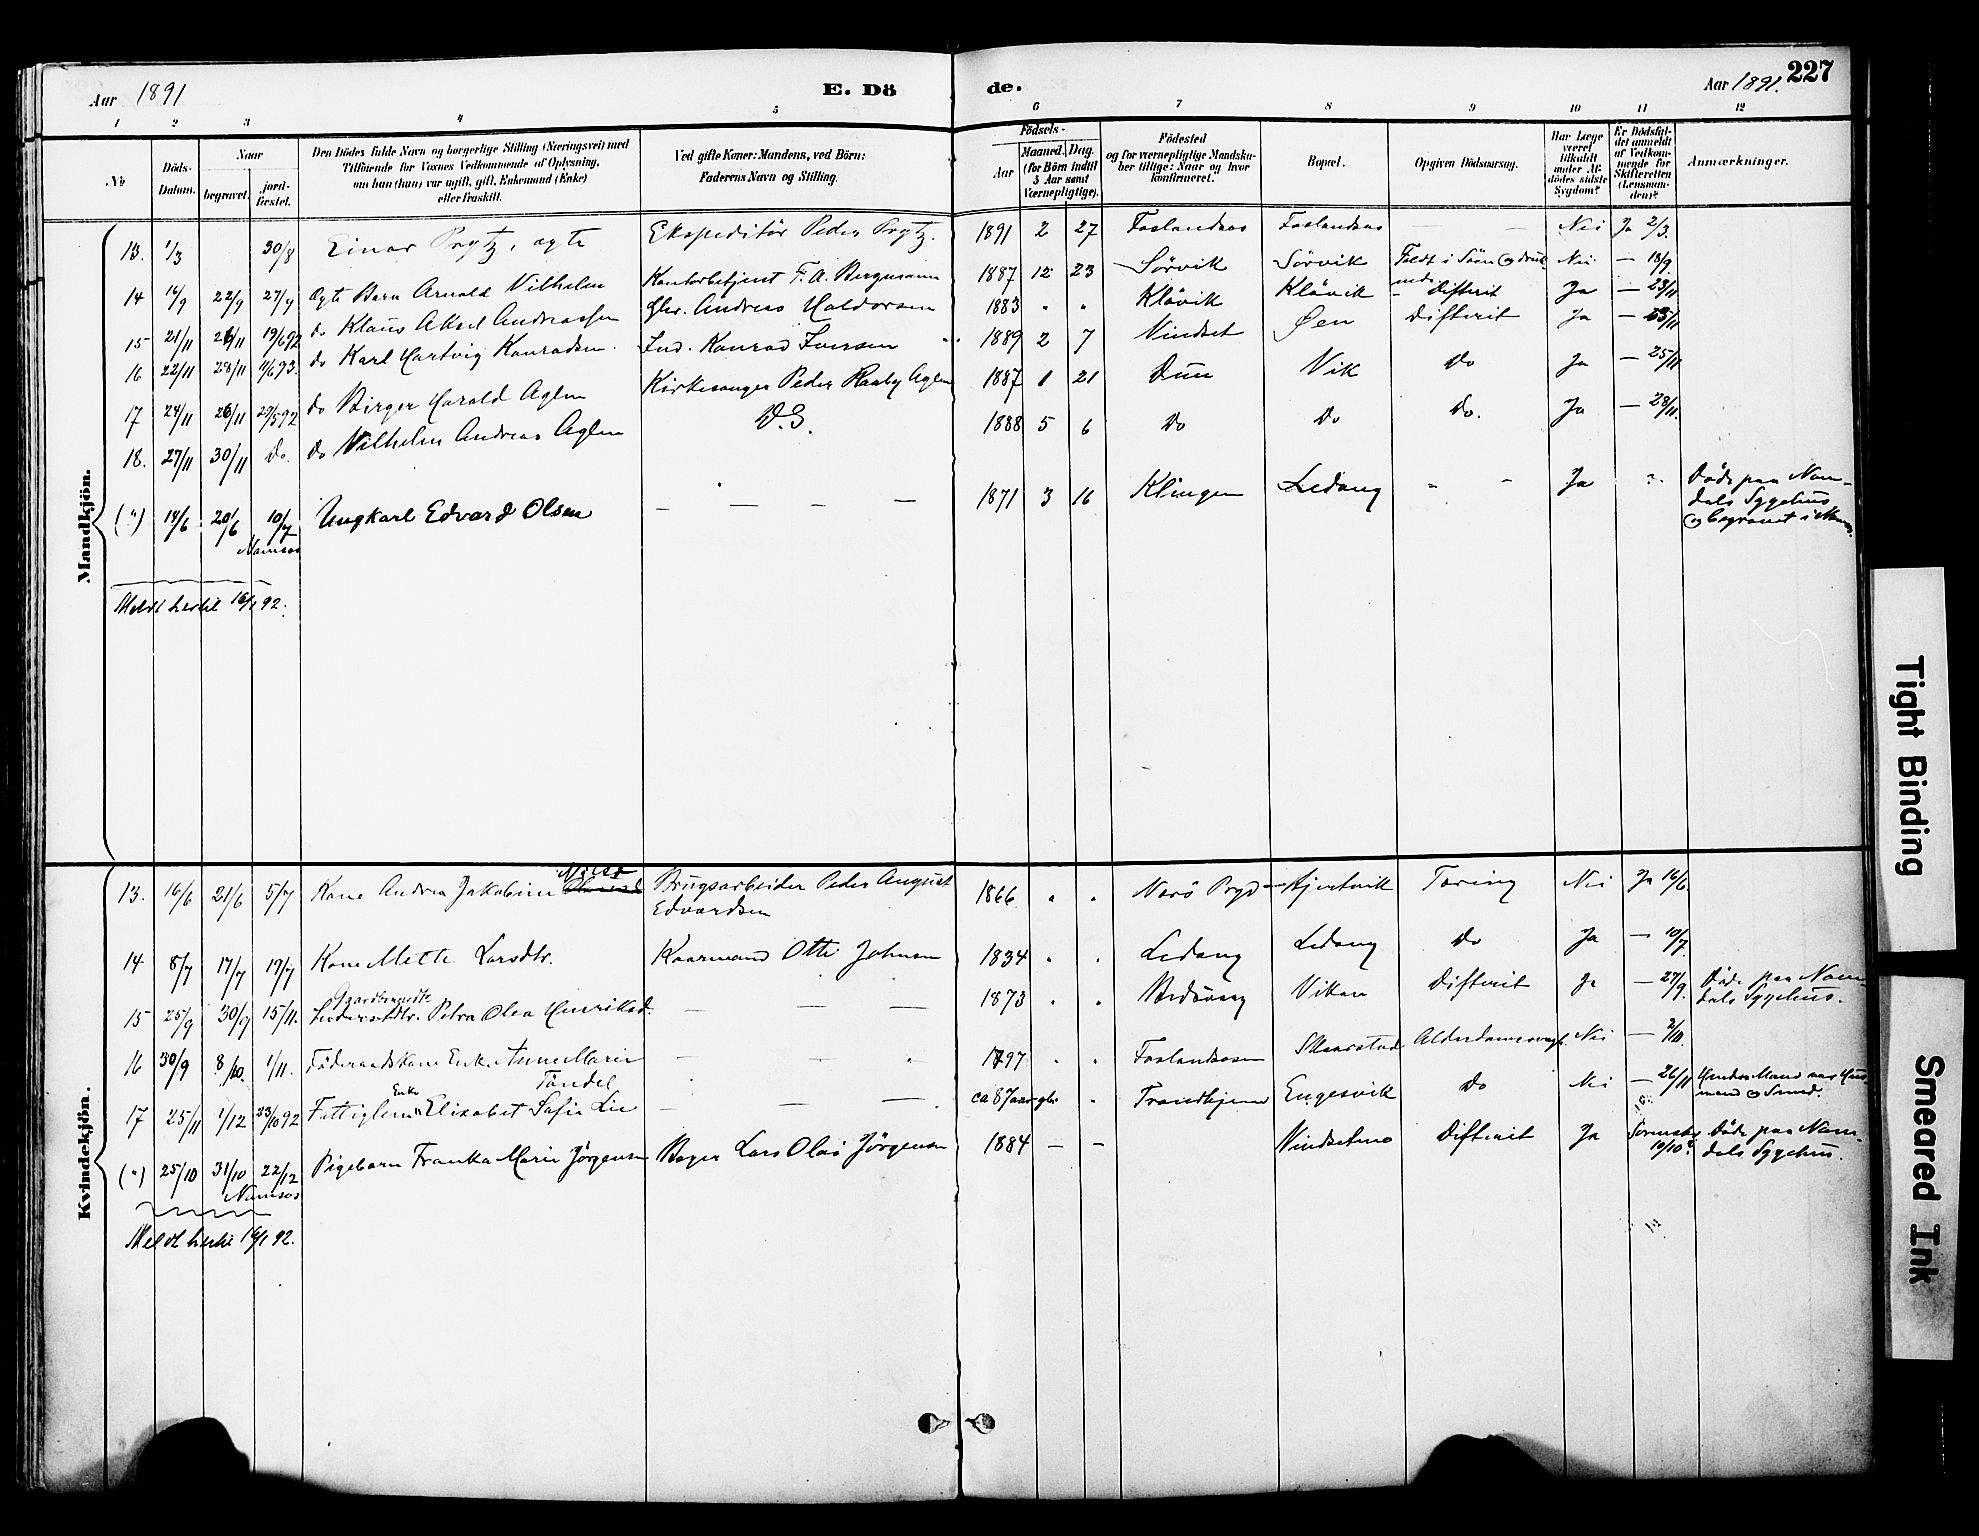 Aar 1891
E. Dö
de.
Aar 1891.
227
1 2 3 4 5 6 7 8 9 10 11 12
No
Döds-Datum.
Naar
begravet.
jord-fæstet.
Den Dödes fulde Navn og borgerlige Stilling (Næringsvei) med
Tilföiende for Voxnes Vedkommende af Oplysning,
om han (hun) var ugift, gift, Enkemand (Enke)
eller fraskilt.
Ved gifte Koner: Mandens, ved Börn:
Faderens Navn og Stilling.
Födsels-
Aar
Maaned. Dag.
(for Börn indtil
5 Aar samt
Værnepligtige).
Födested
og for værnepligtige Mandska-
ber tillige: Naar og hvor
konfirmeret.
Bopæl.
Opgiven Dödsaarsag.
Har Læge
været
tilkaldt
under Af-
dödes sidste
Sygdom?
Er Dödsfal-
det anmeldt
af Vedkom-
mende for
Skifteretten
(Lensman-
den)?
Anmærkninger.
Mandkjön.
13. 1/3 30/8 Einar Prytz, ægte Ekspeditör Peder Prytz. 1891 2 27 Foslandsos Foslandsos — — Nei Ja 2/3.
14 16/9 22/9 27/9 Ægte Barn Arnold Vilhelm Kontorbetjent F. A. Bergmann 1887 12 23 Sörvik Sörvik Faldt i Söen og druknede Nei — 18/9.
15 21/11 26/11 19/6 92 do Klaus Aksel Andreassen Gbr. Andreas Haldorsen 1883 " " Klövik Klövik Difterit Ja — 23/11
16 22/11 28/11 11/6 93. do Karl Hartvig Konradsen. Ind. Konrad Iversen 1889 2 7 Vindset Øen Difterit Ja — 23/11
17 24/11 26/11 29/5 92 do Birger Harald Aglen Kirkesanger Peder Aglen 1887 1 21 Dun Vik Do Ja — 25/11
18. 27/11 30/11 Do. do Vilhelm Andreas Aglen D.S. 1888 5 6 Do Do Do. Ja — 28/11.
(") 14/6 20/6 10/7 Ungkarl Edvard Olsen — — — — 1871 3 16 Klingen Ledang - - Ja " Döde paa Nam-
dals Sygehus
og begravet i
Namsos
Meldt hertil 16/1 92.
Kvindekjön.
13. 16/6 21/6 5/7 Kone Andrea Jakobine Brugsarbeider Peder August
Edvardsen 1866 " " Nærö Prgd Tæring Nei Ja 16/6
14 8/7 17/7 19/7 Kone Mette Larsdtr. Kaarmand Otte Johnsen 1834 " " Ledang Ledang Do Ja — 10/7
Gaardbrugerdtr.
15 25/9 30/9 15/11. Petra Olea Henriksd. — — — 1873 " " Viken Difterit Ja — 27/9. Döde paa Nam-
dals Sygehus.
16 30/9 8/10. 1/11. Föderaadskone Enke Anne Marie
Töndel — — " 1797 " " Foslandsosen Skaarstad Alderdomssvagh. Nei — 2/10.
Enke
17 25/11 1/12 23/10 92 Fattiglem Elisabet Sofie Lie — — — ca 87 aar gl. " Trondhjem Engesvik Do Nei — 26/11 Hendes Mand var Hus-
mand og Smed.
(") 25/10 31/10 22/12 Pigebarn Franka Marie Jörgensen Bager Lars Olai Jörgensen 1884 — — Vindsetmo Difterit Ja 10/10? Döde paa Nam-
dals Sygehus.
Namsos
Meldt hertil 16/1 92.
Tight Binding
Smeared Ink